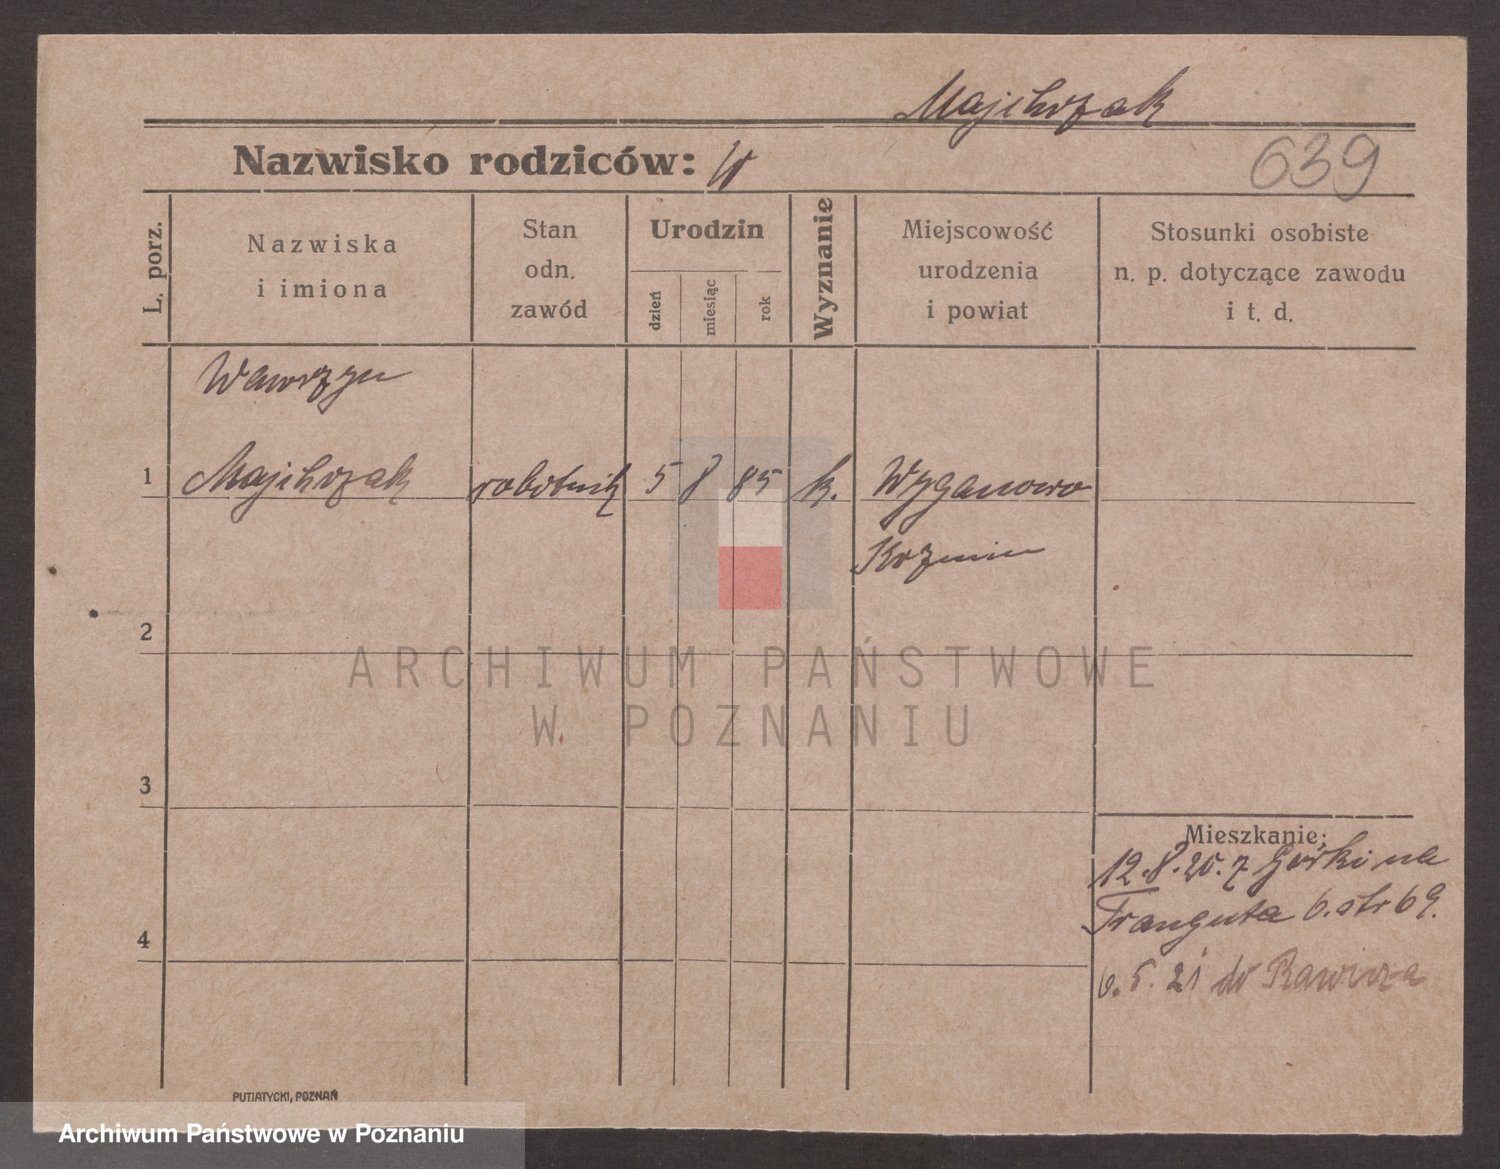 Majchrzak
639
Nazwisko rodziców: W
L. porz.
Nazwiska
i imiona
Stan
odn.
zawód
Urodzin
dzień
miesiąc
rok
Wyznanie
Miejscowość
urodzenia
i powiat
Stosunki osobiste
n. p. dotyczące zawodu
i t. d.
Wawrzyn
1 Majchrzak robotnik 5 8 85 k. Wyganowo
Kozmin
2
ARCHIWUM PAŃSTWOWE
W POZNANIU
3
Mieszkanie:
12.8.20. z Gorki na
6. str 69.
4
6.5.21 do Rawicza
PUTIATYCKI, POZNAŃ
Archiwum Państwowe w Poznaniu